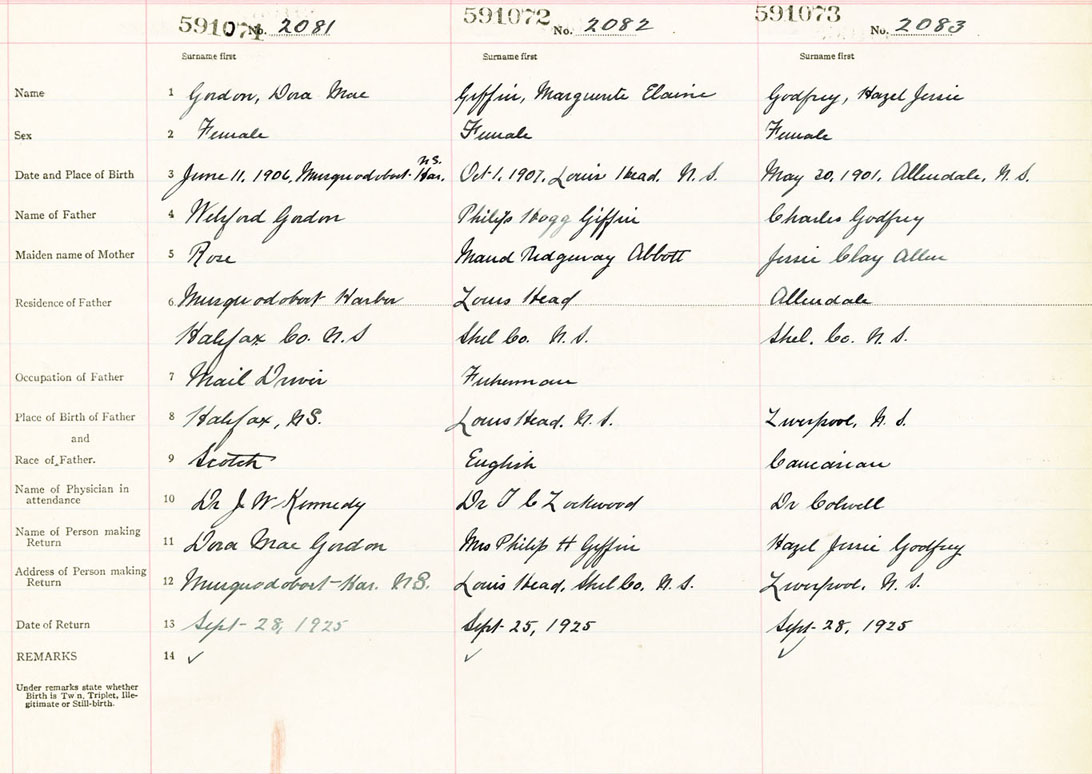 591071 No. 2081 591072 No. 2082 591073 No. 2083
Surname first Surname first Surname first
Name 1 Gordon, Dora Mae Giffin, Marguerite Elaine Godfrey, Hazel Jessie
Sex 2 Female Female Female
N.S.
Date and Place of Birth 3 June 11, 1906, Musquodoboit Har. Oct 1, 1907, Louis Head, N. S. May 20, 1901, Allendale, N. S.
Name of Father 4 Welsford Gordon Philip Hogg Giffin Charles Godfrey
Maiden name of Mother 5 Rose Maud Ridgeway Abbott Jessie Clay Allen
Residence of Father 6 Musquodoboit Harbor Louis Head Allendale
Halifax Co. N.S Shel Co. N. S. Shel. Co. N. S.
Occupation of Father 7 Mail Driver Fisherman
Place of Birth of Father 8 Halifax, NS. Louis Head, N. S. Liverpool, N. S.
and
Race of Father. 9 Scotch English Caucasian
Name of Physician in
attendance 10 Dr J. W Kennedy Dr T C Lockwood Dr Colwell
Name of Person making
Return 11 Dora Mae Gordon Mrs Philip H Giffin Hazel Jessie Godfrey
Address of Person making
Return 12 Musquodoboit-Har. N.S. Louis Head, Shel Co. N. S. Liverpool, N. S.
Date of Return 13 Sept-28, 1925 Sept 25, 1925 Sept-28, 1925
REMARKS 14 ✓ ✓ ✓
Under remarks state whether
Birth is Twin, Triplet, Ille-
gitimate or Still-birth.